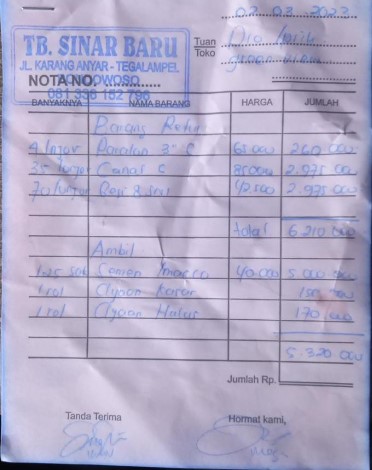 02.03.2023
TB. SINAR BARU
JL. KARANG ANYAR - TEGALAMPEL
BONDOWOSO
081 336 152
Tuan
Toko
NOTA NO.
BANYAKNYA NAMA BARANG HARGA JUMLAH
Barang Retur
4 lnjor Paralon 3" C 65000 260.000
35 lonjor Canal C 85000 2.975.000
70 lonjor Reng 42500 2.975.000
total 6 210.000
Ambil
125 sak Semen 40.000 5.000.000
1 rol Ayaan Kasar 150.000
1 rol Ayaan Halus 170.000
5.320.000
Jumlah Rp.
Tanda Terima Hormat kami,